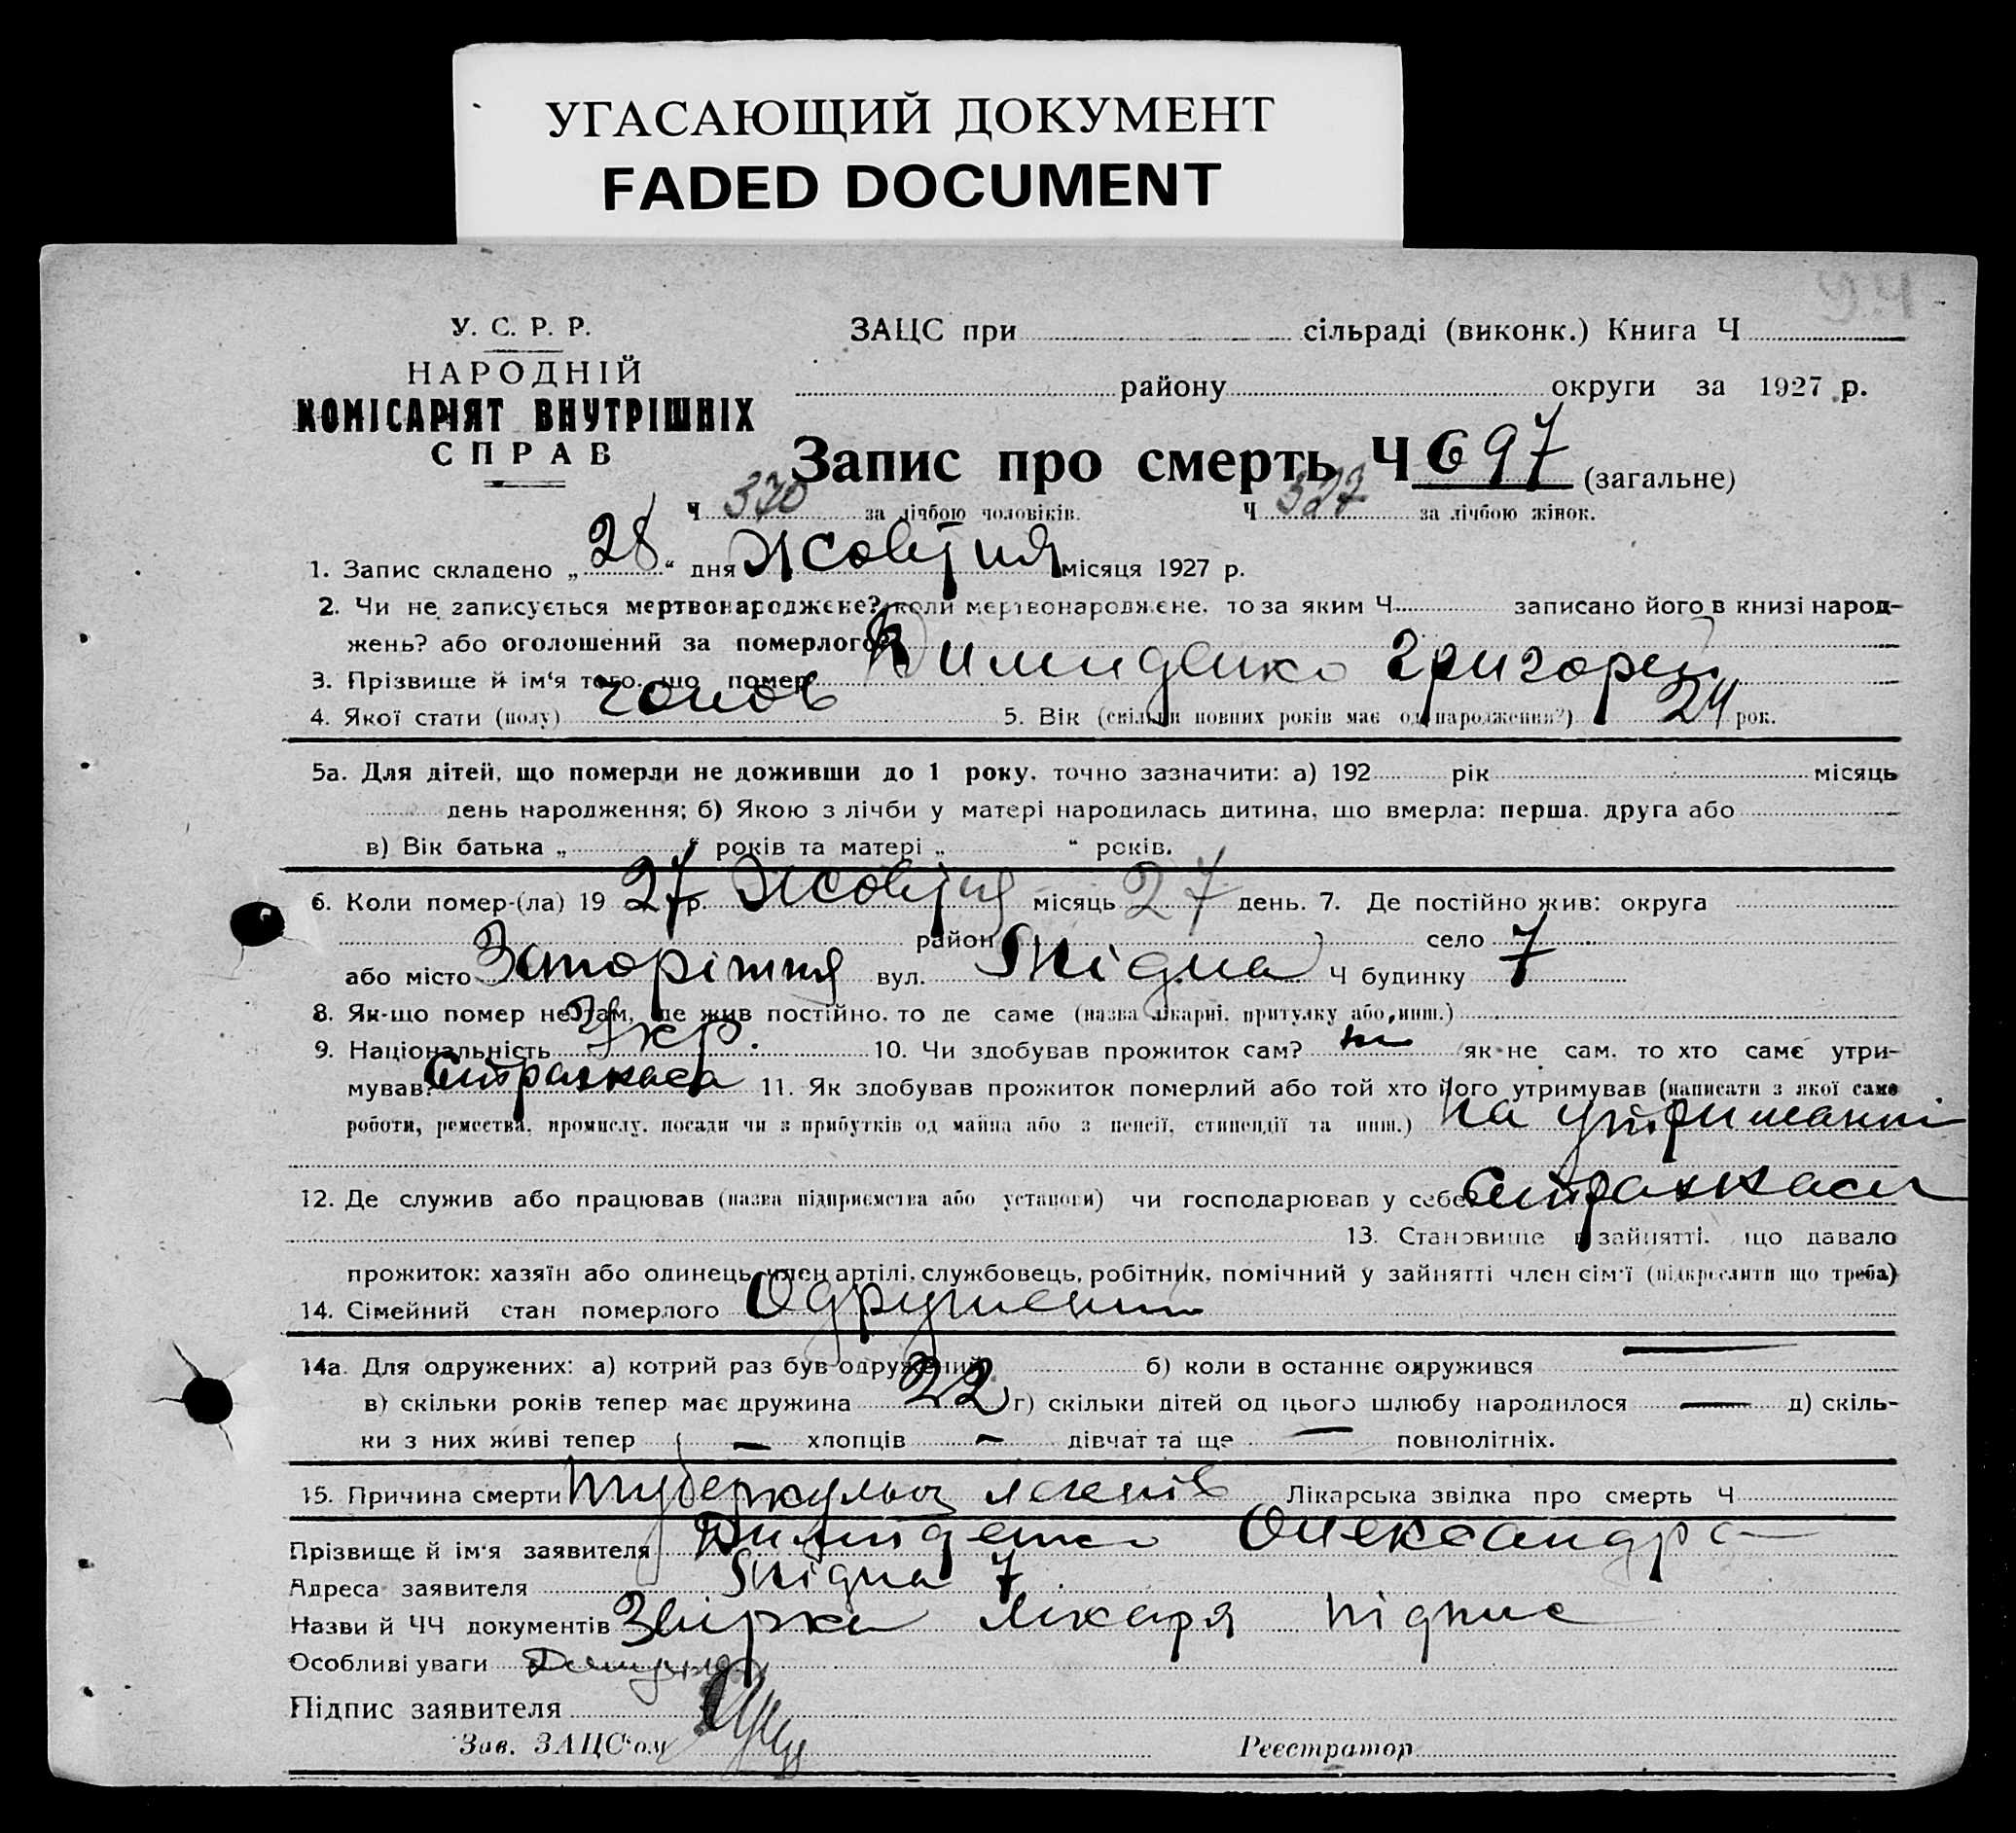 УГАСАЮЩИЙ ДОКУМЕНТ
FADED DOCUMENT
У. С. Р. Р.
НАРОДНІЙ
КОМІСАРІЯТ ВНУТРІШНІХ
СПРАВ
ЗАЦС при сільраді (виконк.) Книга Ч
району округи за 1927 р.
Запис про смерть Ч 697 (загальне)
Ч 370 за лічбою чоловіків. Ч 327 за лічбою жінок.
1. Запис складено „28“ дня Жовтня місяця 1927 р.
2. Чи не записується мертвонароджене? коли мертвонароджене, то за яким Ч записано його в книзі народ-
жень? або оголошений за померлого?
3. Прізвище й ім'я того, що помер Григорей
4. Якої стати (полу) чолов 5. Вік (скільки повних років має од народження?) 24 рок.
5а. Для дітей, що померли не доживши до 1 року, точно зазначити: а) 192 рік місяць
день народження; б) Якою з лічби у матері народилась дитина, що вмерла: перша, друга або
в) Вік батька „ “ років та матері „ “ років.
6. Коли помер-(ла) 1927 р. Жовтня місяць 27 день. 7. Де постійно жив: округа
район село
або місто Запоріжжя вул. Східна Ч будинку 7
8. Як-що помер не там, де жив постійно, то де саме (назва лікарні, притулку або инш.)
9. Національність Укр. 10. Чи здобував прожиток сам? ні як не сам, то хто саме утри-
мував? Страхкаса 11. Як здобував прожиток померлий або той хто його утримував (написати з якої саме
роботи, ремества, промислу, посади чи з прибутків од майна або з пенсії, стипендії та инш.) на утриманні
12. Де служив або працював (назва підприємства або установи) чи господарював у себе Страхкаси
13. Становище в зайнятті, що давало
прожиток: хазяїн або одинець, член артілі, службовець, робітник, помічний у зайнятті член сім'ї (підкреслити що треба)
14. Сімейний стан померлого Одружений
14а. Для одружених: а) котрий раз був одружений б) коли в останнє одружився —
в) скільки років тепер має дружина 22 г) скільки дітей од цього шлюбу народилося — д) скіль-
ки з них живі тепер — хлопців — дівчат та ще — повнолітніх.
15. Причина смерти туберкульоз легенів Лікарська звідка про смерть Ч
Прізвище й ім'я заявителя Олександра
Адреса заявителя Східна 7
Назви й ЧЧ документів лікаря підпис
Особливі уваги
Підпис заявителя
Зав. ЗАЦС'ом Реєстратор